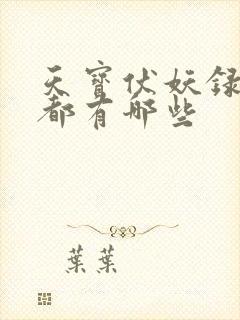 天寶伏妖録
都有哪些
葉葉